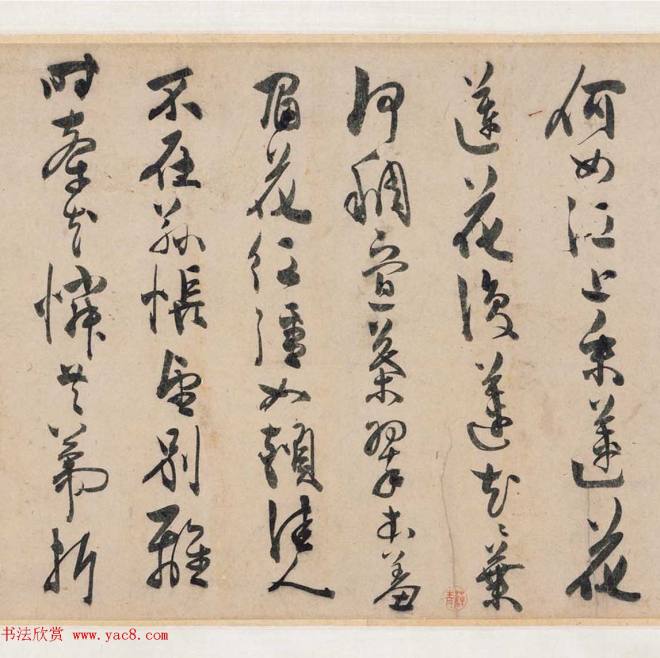 何如江上采蓮花
蓮花復蓮花〻葉
何稠疊葉翠本羞
眉花紅彊如頰佳人
不在茲悵望別離
時牽花憐共蒂折
书法欣赏 www.yac8.com